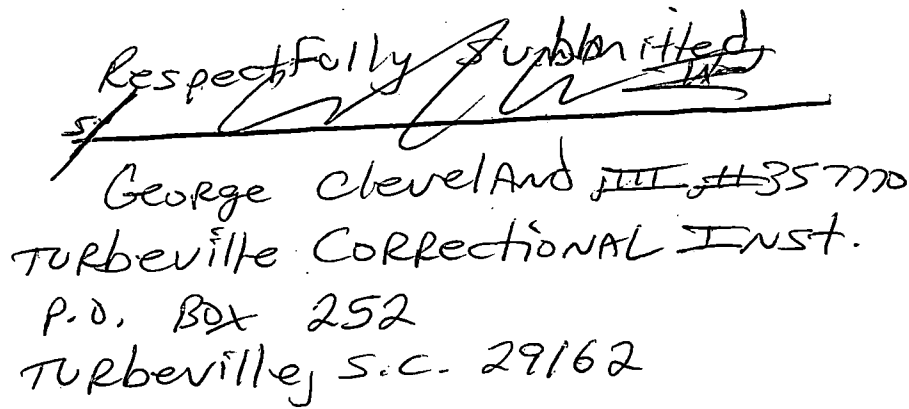 Respectfully Submitted,
s/
George Cleveland III #357770
Turbeville Correctional Inst.
P.O. Box 252
Turbeville, S.C. 29162